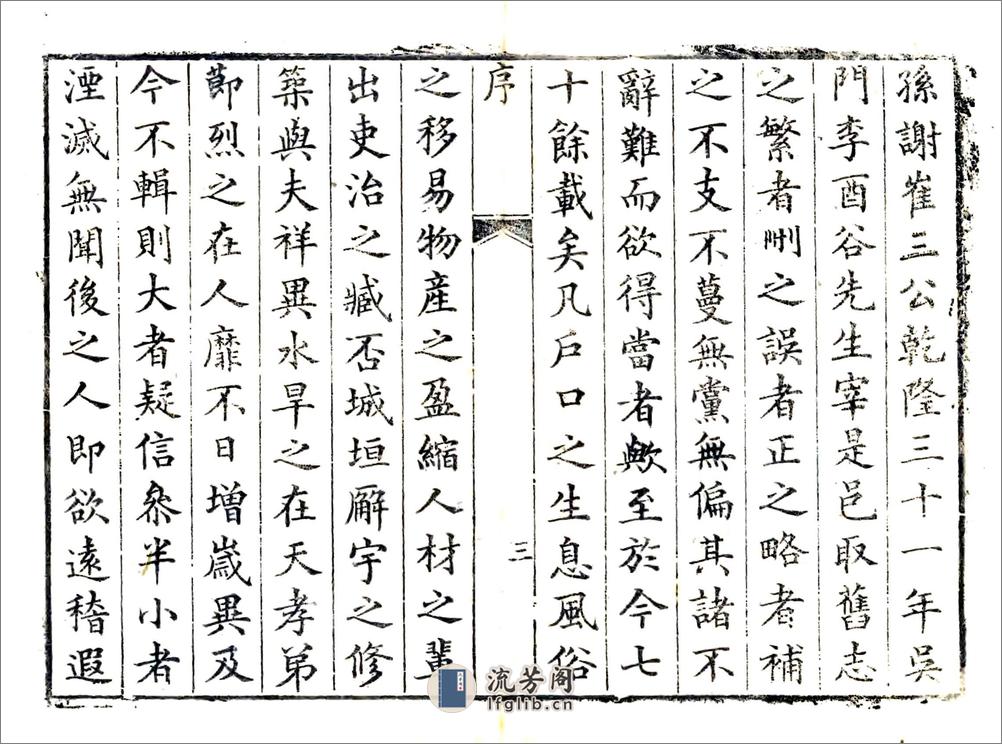 孫謝崔三公乾隆三十一年吳
門李酉谷先生宰是邑取舊志
之繁者刪之誤者正之略者補
之不支不蔓無黨無偏其諸不
辭難而欲得當者歟至於今七
十餘載矣凡戶口之生息風俗
序
三
之移易物產之盈縮人材之輩
出吏治之臧否城垣廨宇之修
築與夫祥異水旱之在天孝弟
節烈之在人靡不日增歲異及
今不輯則大者疑信叅半小者
湮滅無聞後之人即欲遠稽遐
流芳阁
lfglib.cn